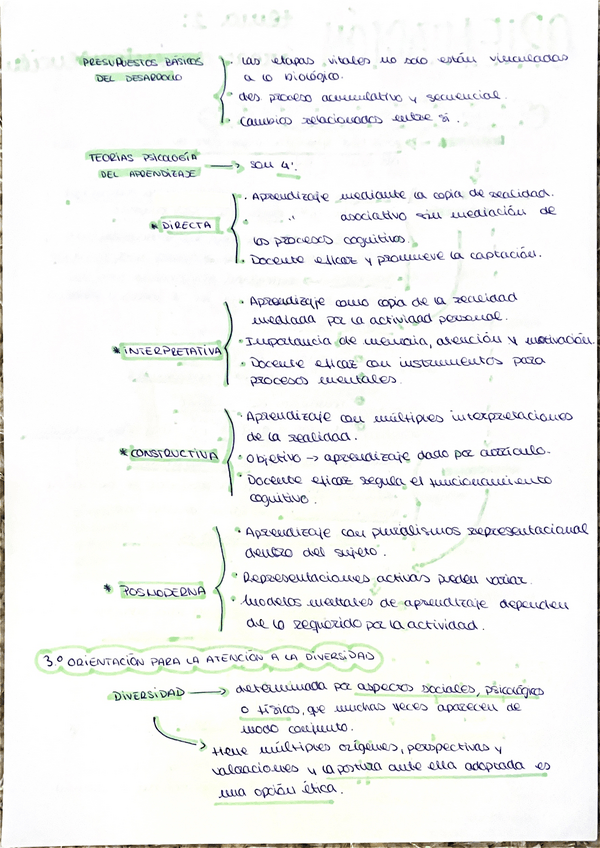 PRESUPUESTOS BÁSICOS
DEL DESARROLLO
· Las etapas vitales no solo están vinculadas
a lo biológico.
· des proceso acumulativo y secuencial.
· Cambios relacionados entre sí.
TEORÍAS PSICOLOGÍA
DEL APRENDIZAJE → son 4.
* DIRECTA
· Aprendizaje mediante la copia de realidad.
· " asociativo sin mediación de
los procesos cognitivos.
· Docente eficaz y promueve la captación.
* INTERPRETATIVA
· Aprendizaje como copia de la realidad
mediada por la actividad personal.
· Importancia de memoria, atención y motivación.
· Docente eficaz con instrumentos para
procesos mentales.
* CONSTRUCTIVA
· Aprendizaje con múltiples interpretaciones
de la realidad.
· Objetivo → aprendizaje dado por
· Docente eficaz regula el funcionamiento
cognitivo.
* POSMODERNA
· Aprendizaje con pluralismos representacional
dentro del sujeto.
· Representaciones activas pueden variar.
· Modelos mentales de aprendizaje dependen
de lo requerido por la actividad.
3.º ORIENTACIÓN PARA LA ATENCIÓN A LA DIVERSIDAD
DIVERSIDAD → determinada por aspectos sociales, psicológico
o físicos, que muchas veces aparecen de
modo conjunto.
→ tiene múltiples orígenes, perspectivas y
valoraciones y la postura ante ella adoptada es
una opción ética.